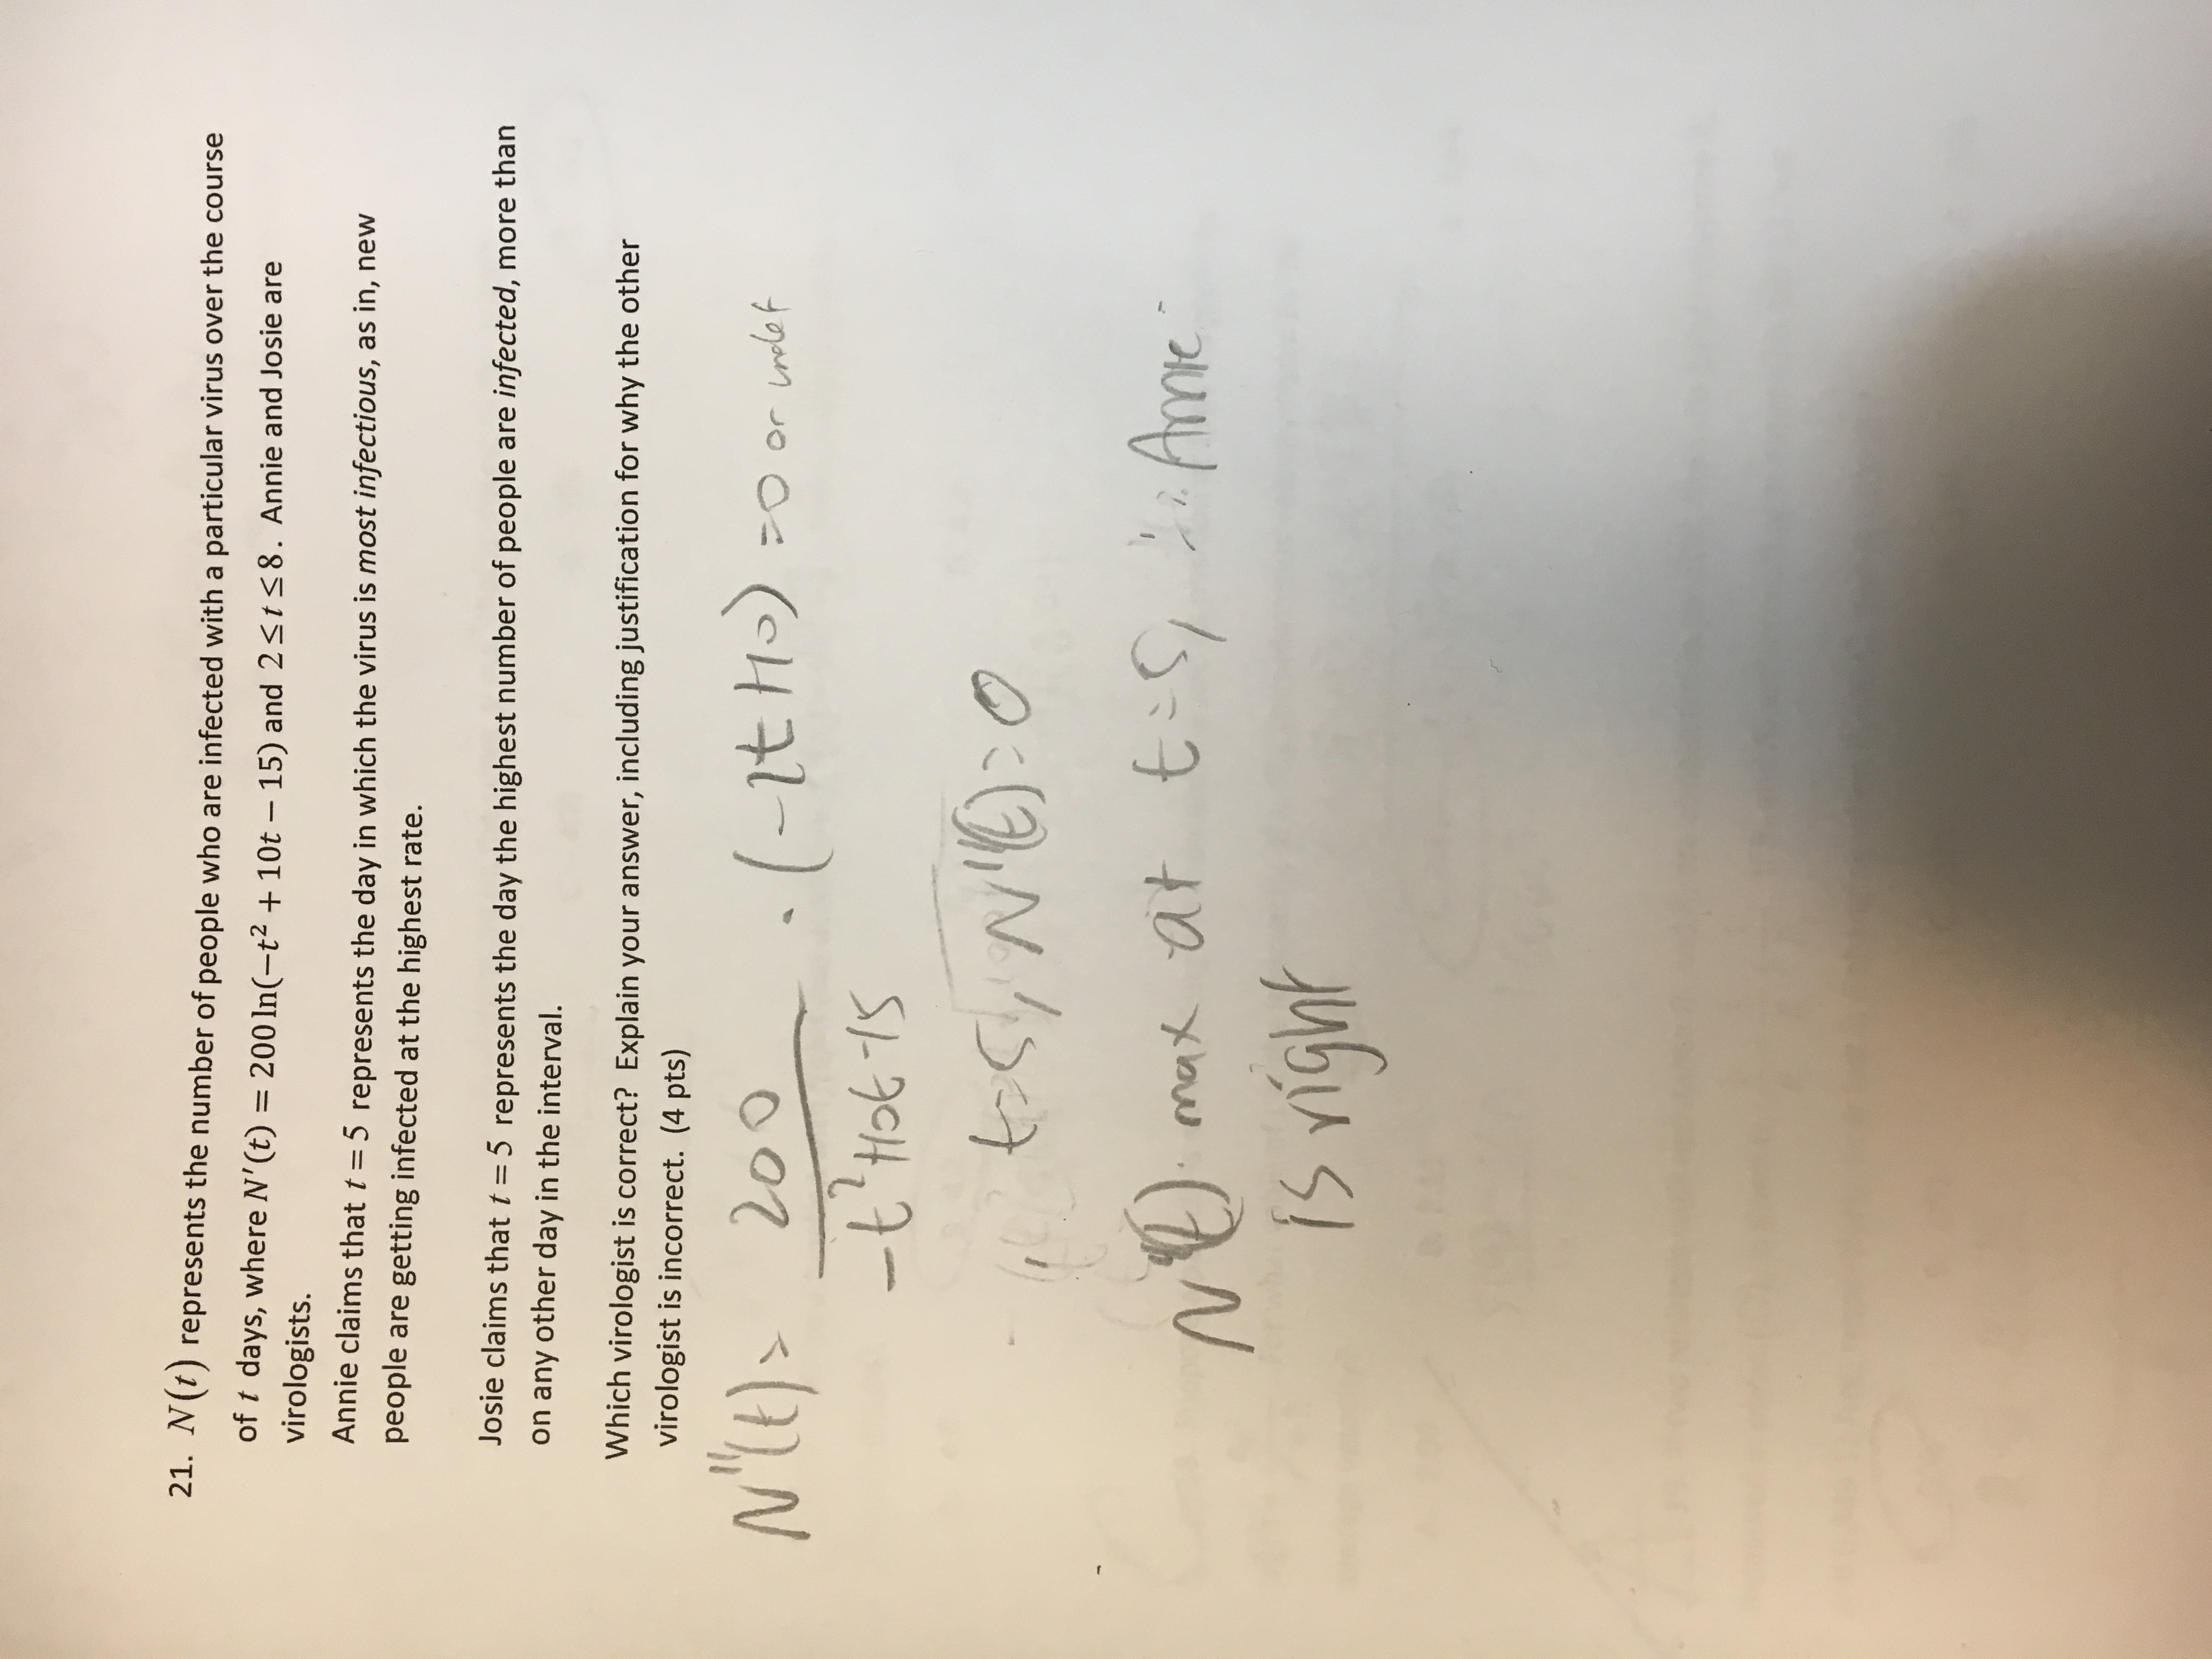 21. N(t) represents the number of people who are infected with a particular virus over the course
of t days, where N′(t) = 200 ln(−t² + 10t − 15) and 2 ≤ t ≤ 8. Annie and Josie are
virologists.
Annie claims that t = 5 represents the day in which the virus is most infectious, as in, new
people are getting infected at the highest rate.
Josie claims that t = 5 represents the day the highest number of people are infected, more than
on any other day in the interval.
Which virologist is correct? Explain your answer, including justification for why the other
virologist is incorrect. (4 pts)
N"(t) = 200 / (-t²+10t-15) · (-2t+10) = 0 or undef
t=5, N"(t)=0
N'(t) max at t=5, ∴ Annie
is right